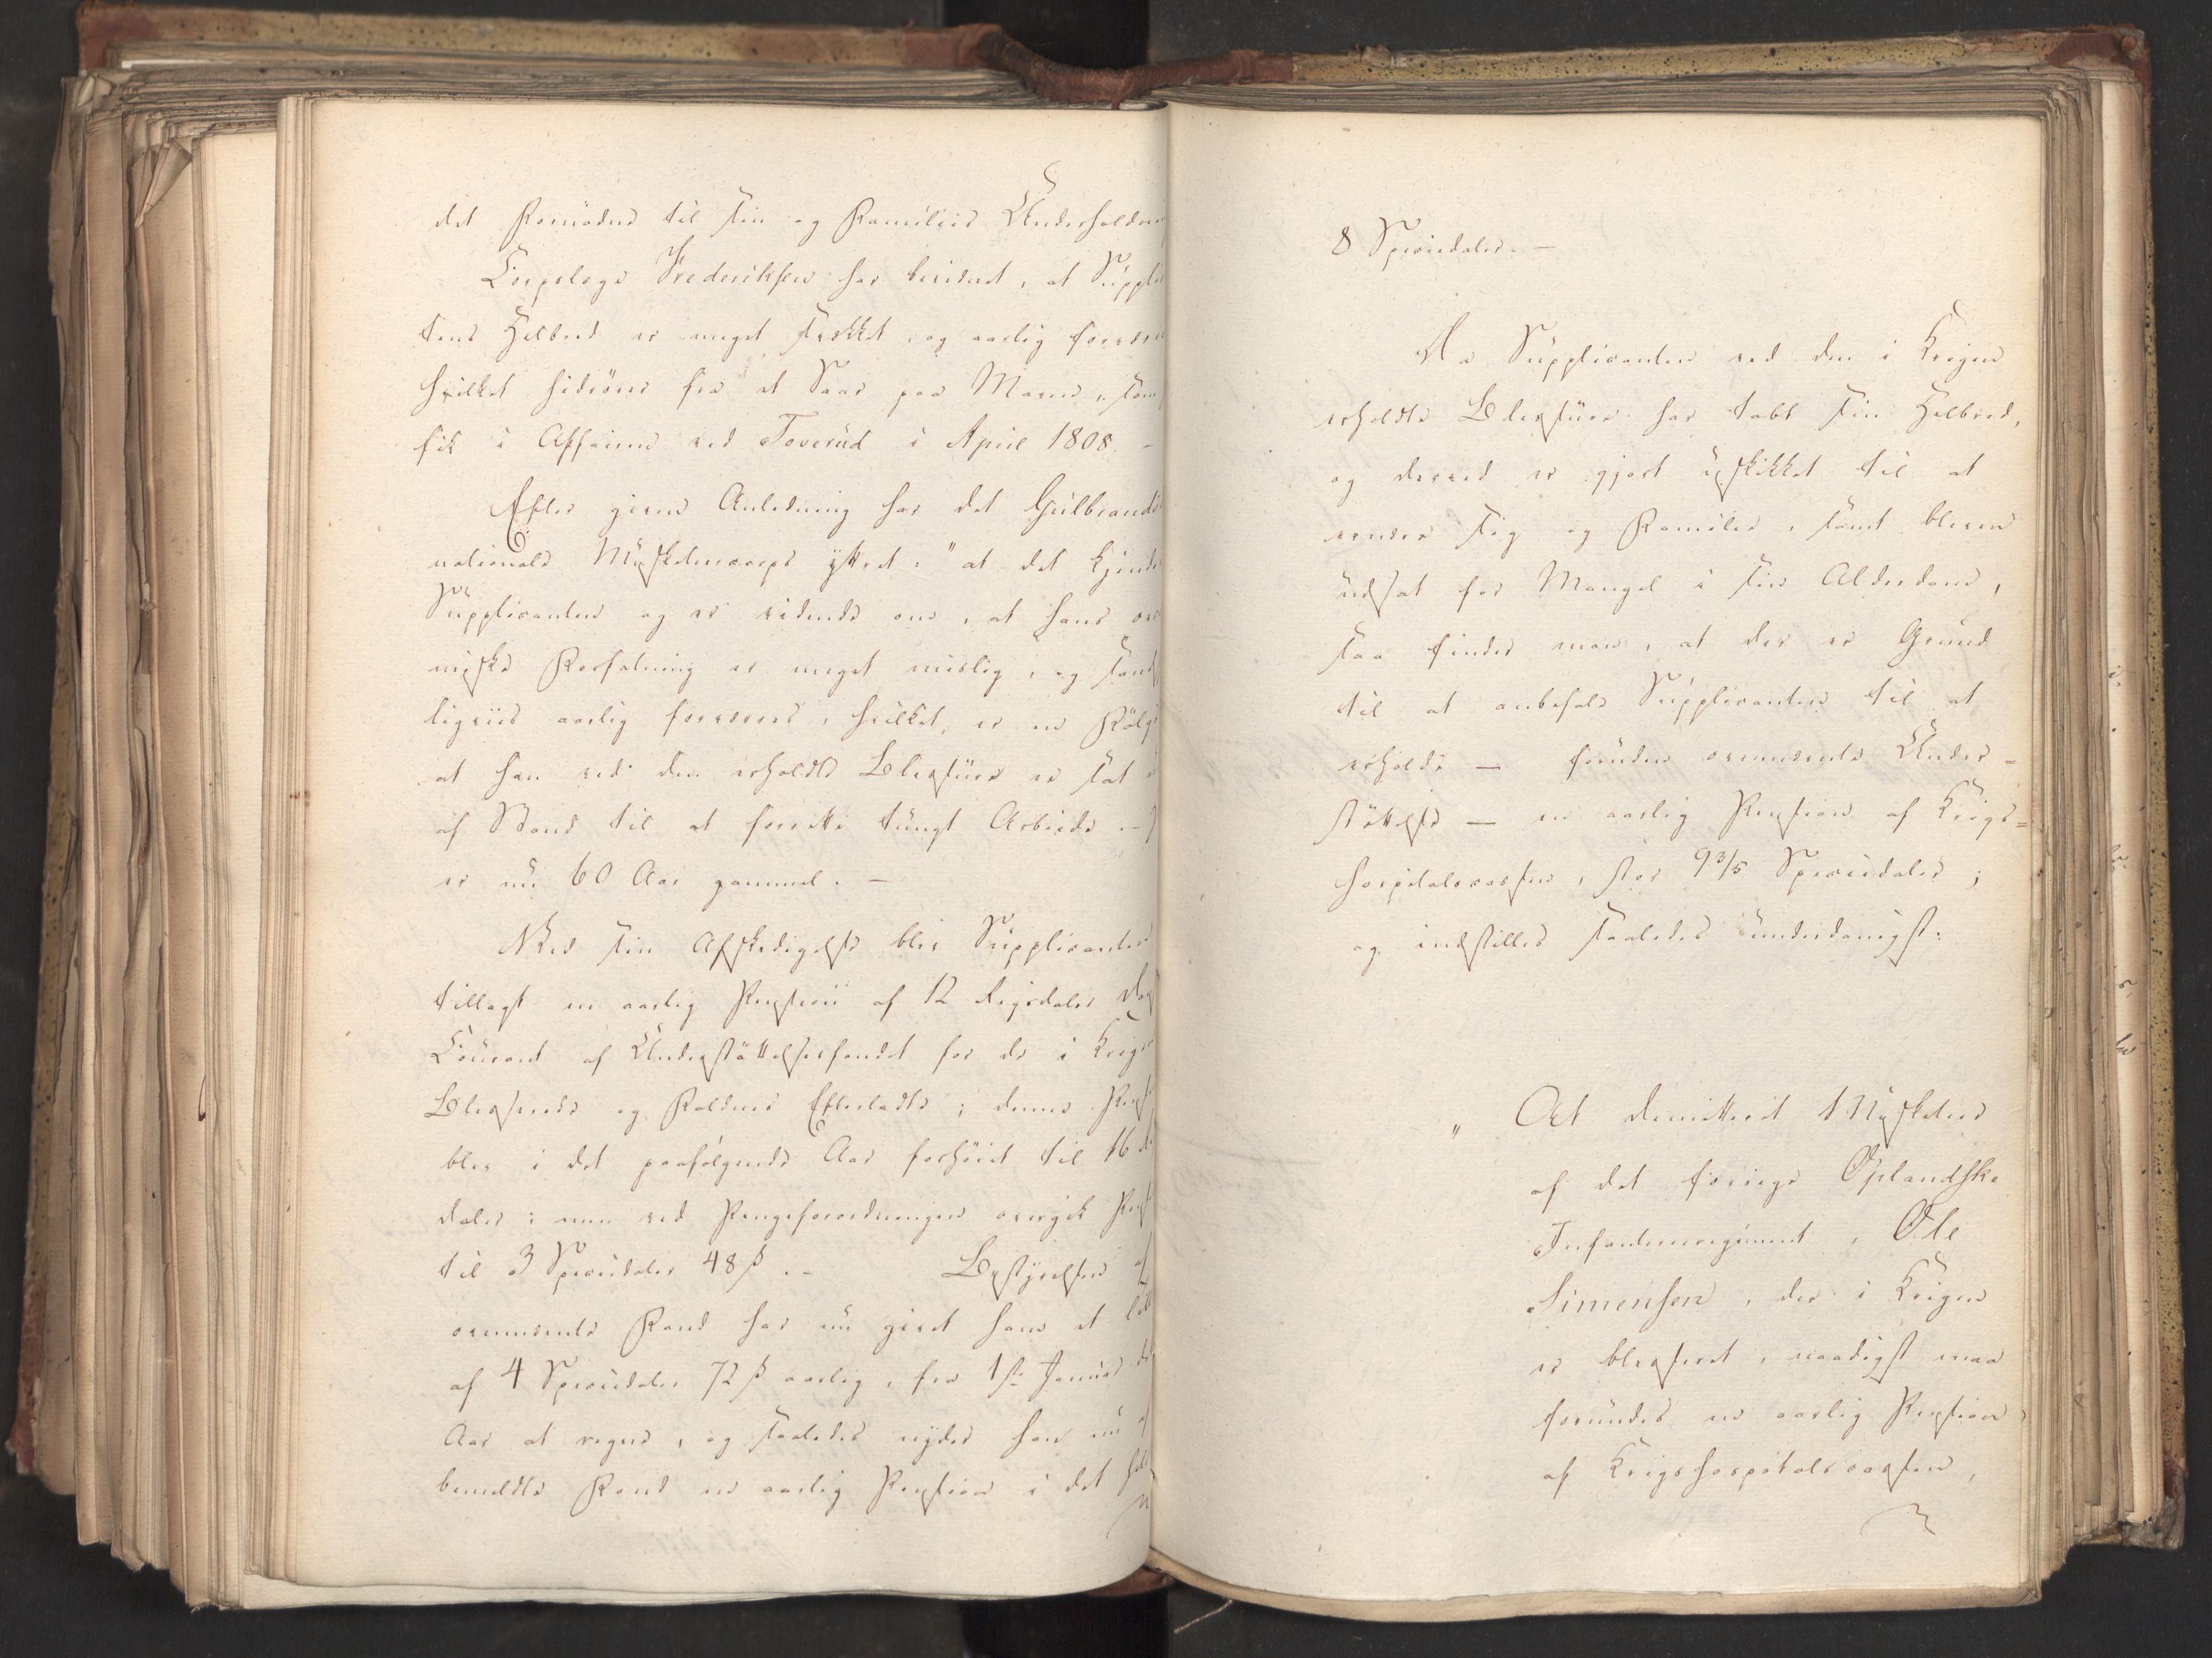 det Fornödne til sin og Familiens Underholdning
Corpslæge Frederiksen har bevidnet, at Suppli
tens Helbred er meget svækket og aarlig forværres
hvilket hidrörer fra et Saar paa Maven, som
fik i Affairen ved Toverud i April 1808. –
Efter given Anledning har det Gulbrands
nationale Musketeercorps yttret: "at det kjender
Supplicanten og er vidende om, at hans oeco
miske Forfatning er meget mislig, og sand
ligviis aarlig forværres, hvilket, er en Fölge
at han ved den erholdte Blessure er sat
af Stand til at forrette tungt Arbeide. –
er nu 60 Aar gammel. –
Ved sin Afskedigelse blev Supplicanten
tillagt en aarlig Pension af 12 Rigsdaler
Courant af Understöttelsesfondet for de i Krigen
Blesserede og Faldnes Efterladte; denne Pens
blev i det paafölgende Aar forhöiet til 16
daler; men ved Pengeforordningen overgik Pens
til 3 Speciedaler 48 ß. – Bestyrelsen af
ovennævnte Fond har nu givet ham et till
af 4 Speciedaler 72 ß aarlig, fra 1ste Januar
Aar at regne, og saaledes nyder han nu af
bemeldte Fond en aarlig Pension i det hele
8 Speciedaler. –
Da Supplicanten ved den i Krigen
erholdte Blessure har tabt sin Helbred,
og derved er gjort uskikket til at
ernære sig og Familie, samt bleven
udsat for Mangel i sin Alderdom,
saa finder man, at der er Grund
til at anbefale Supplicanten til at
erholde — foruden ovennævnte Under=
stöttelse — en aarlig Pension af Krigs=
hospitalscassen, stor 9 3/5 Speciedaler;
og indstilles saaledes underdanigst:
" At demitteret Musketeer
af det forrige Oplandske
Infanterieregiment, Ole
Simensen, der i Krigen
er blesseret, naadigst maa
forundes en aarlig Pension
af Krigshospitalscassen,